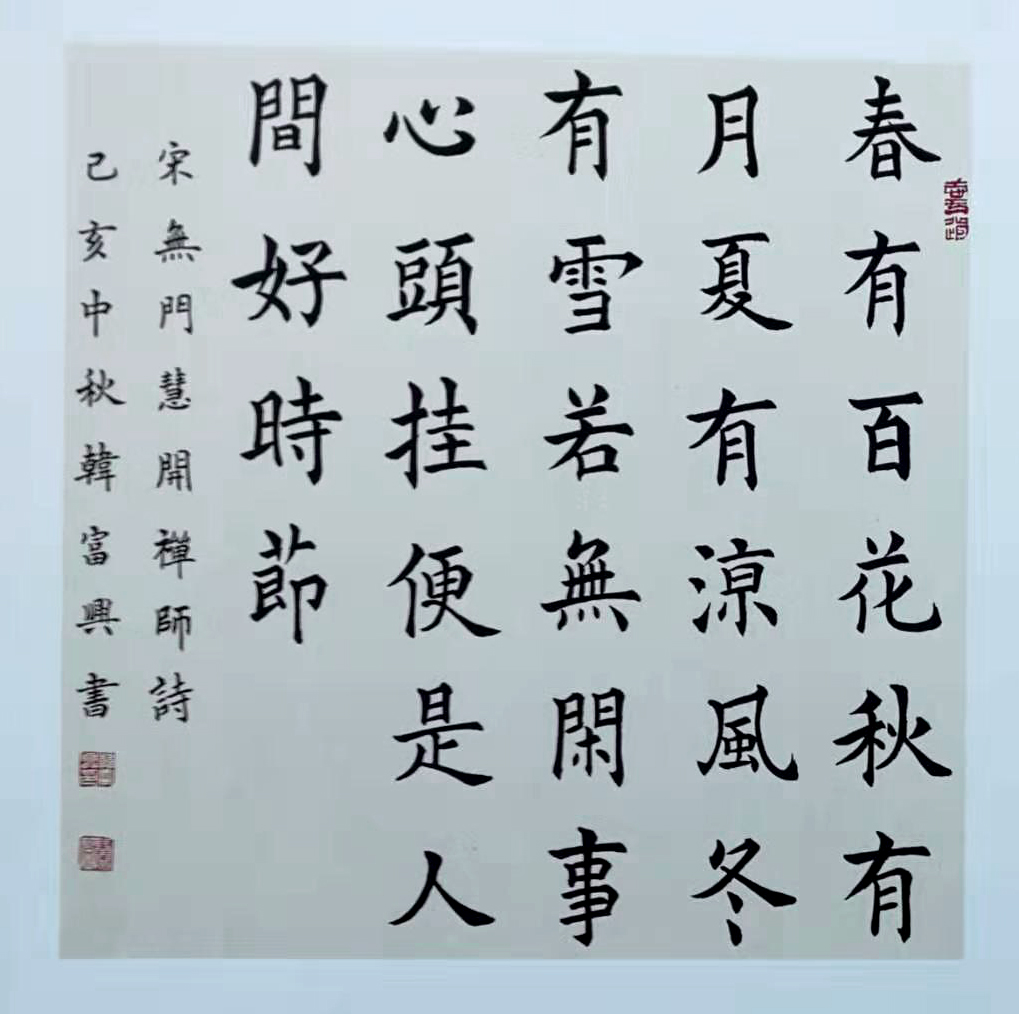 春有百花秋有
月夏有涼風冬
有雪若無閑事
心頭挂便是人
間好時節
宋無門慧開禪師詩
己亥中秋韓富興書